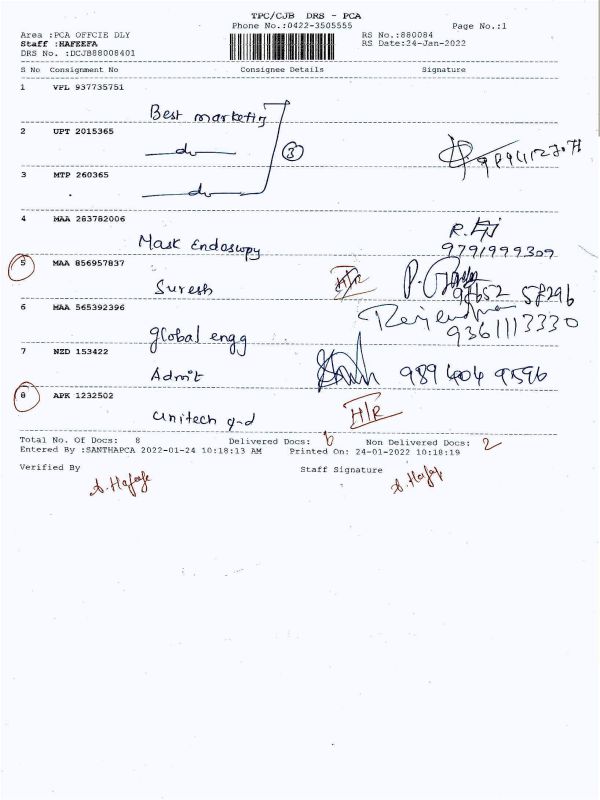 TPC/CJB DRS - PCA
Phone No.:0422-3505555 Page No.:1
Area :PCA OFFCIE DLY RS No.:880084
Staff :HAFEEFA RS Date:24-Jan-2022
DRS No. :DCJB88008401
S No Consignment No Consignee Details Signature
1 VPL 937735751
Best marketing
2 UPT 2015365
do 3
3 MTP 260365
do
4 MAA 283782006
Mask Endoscopy 9791999309
5 MAA 856957837
Suresh H/R P. 98652 58296
6 MAA 565392396
global engg 9361113330
7 NZD 153422
Admit 989 404 9596
8 APK 1232502
Unitech g-d H/R
Total No. Of Docs: 8 Delivered Docs: 6 Non Delivered Docs: 2
Entered By :SANTHAPCA 2022-01-24 10:18:13 AM Printed On: 24-01-2022 10:18:19
Verified By Staff Signature